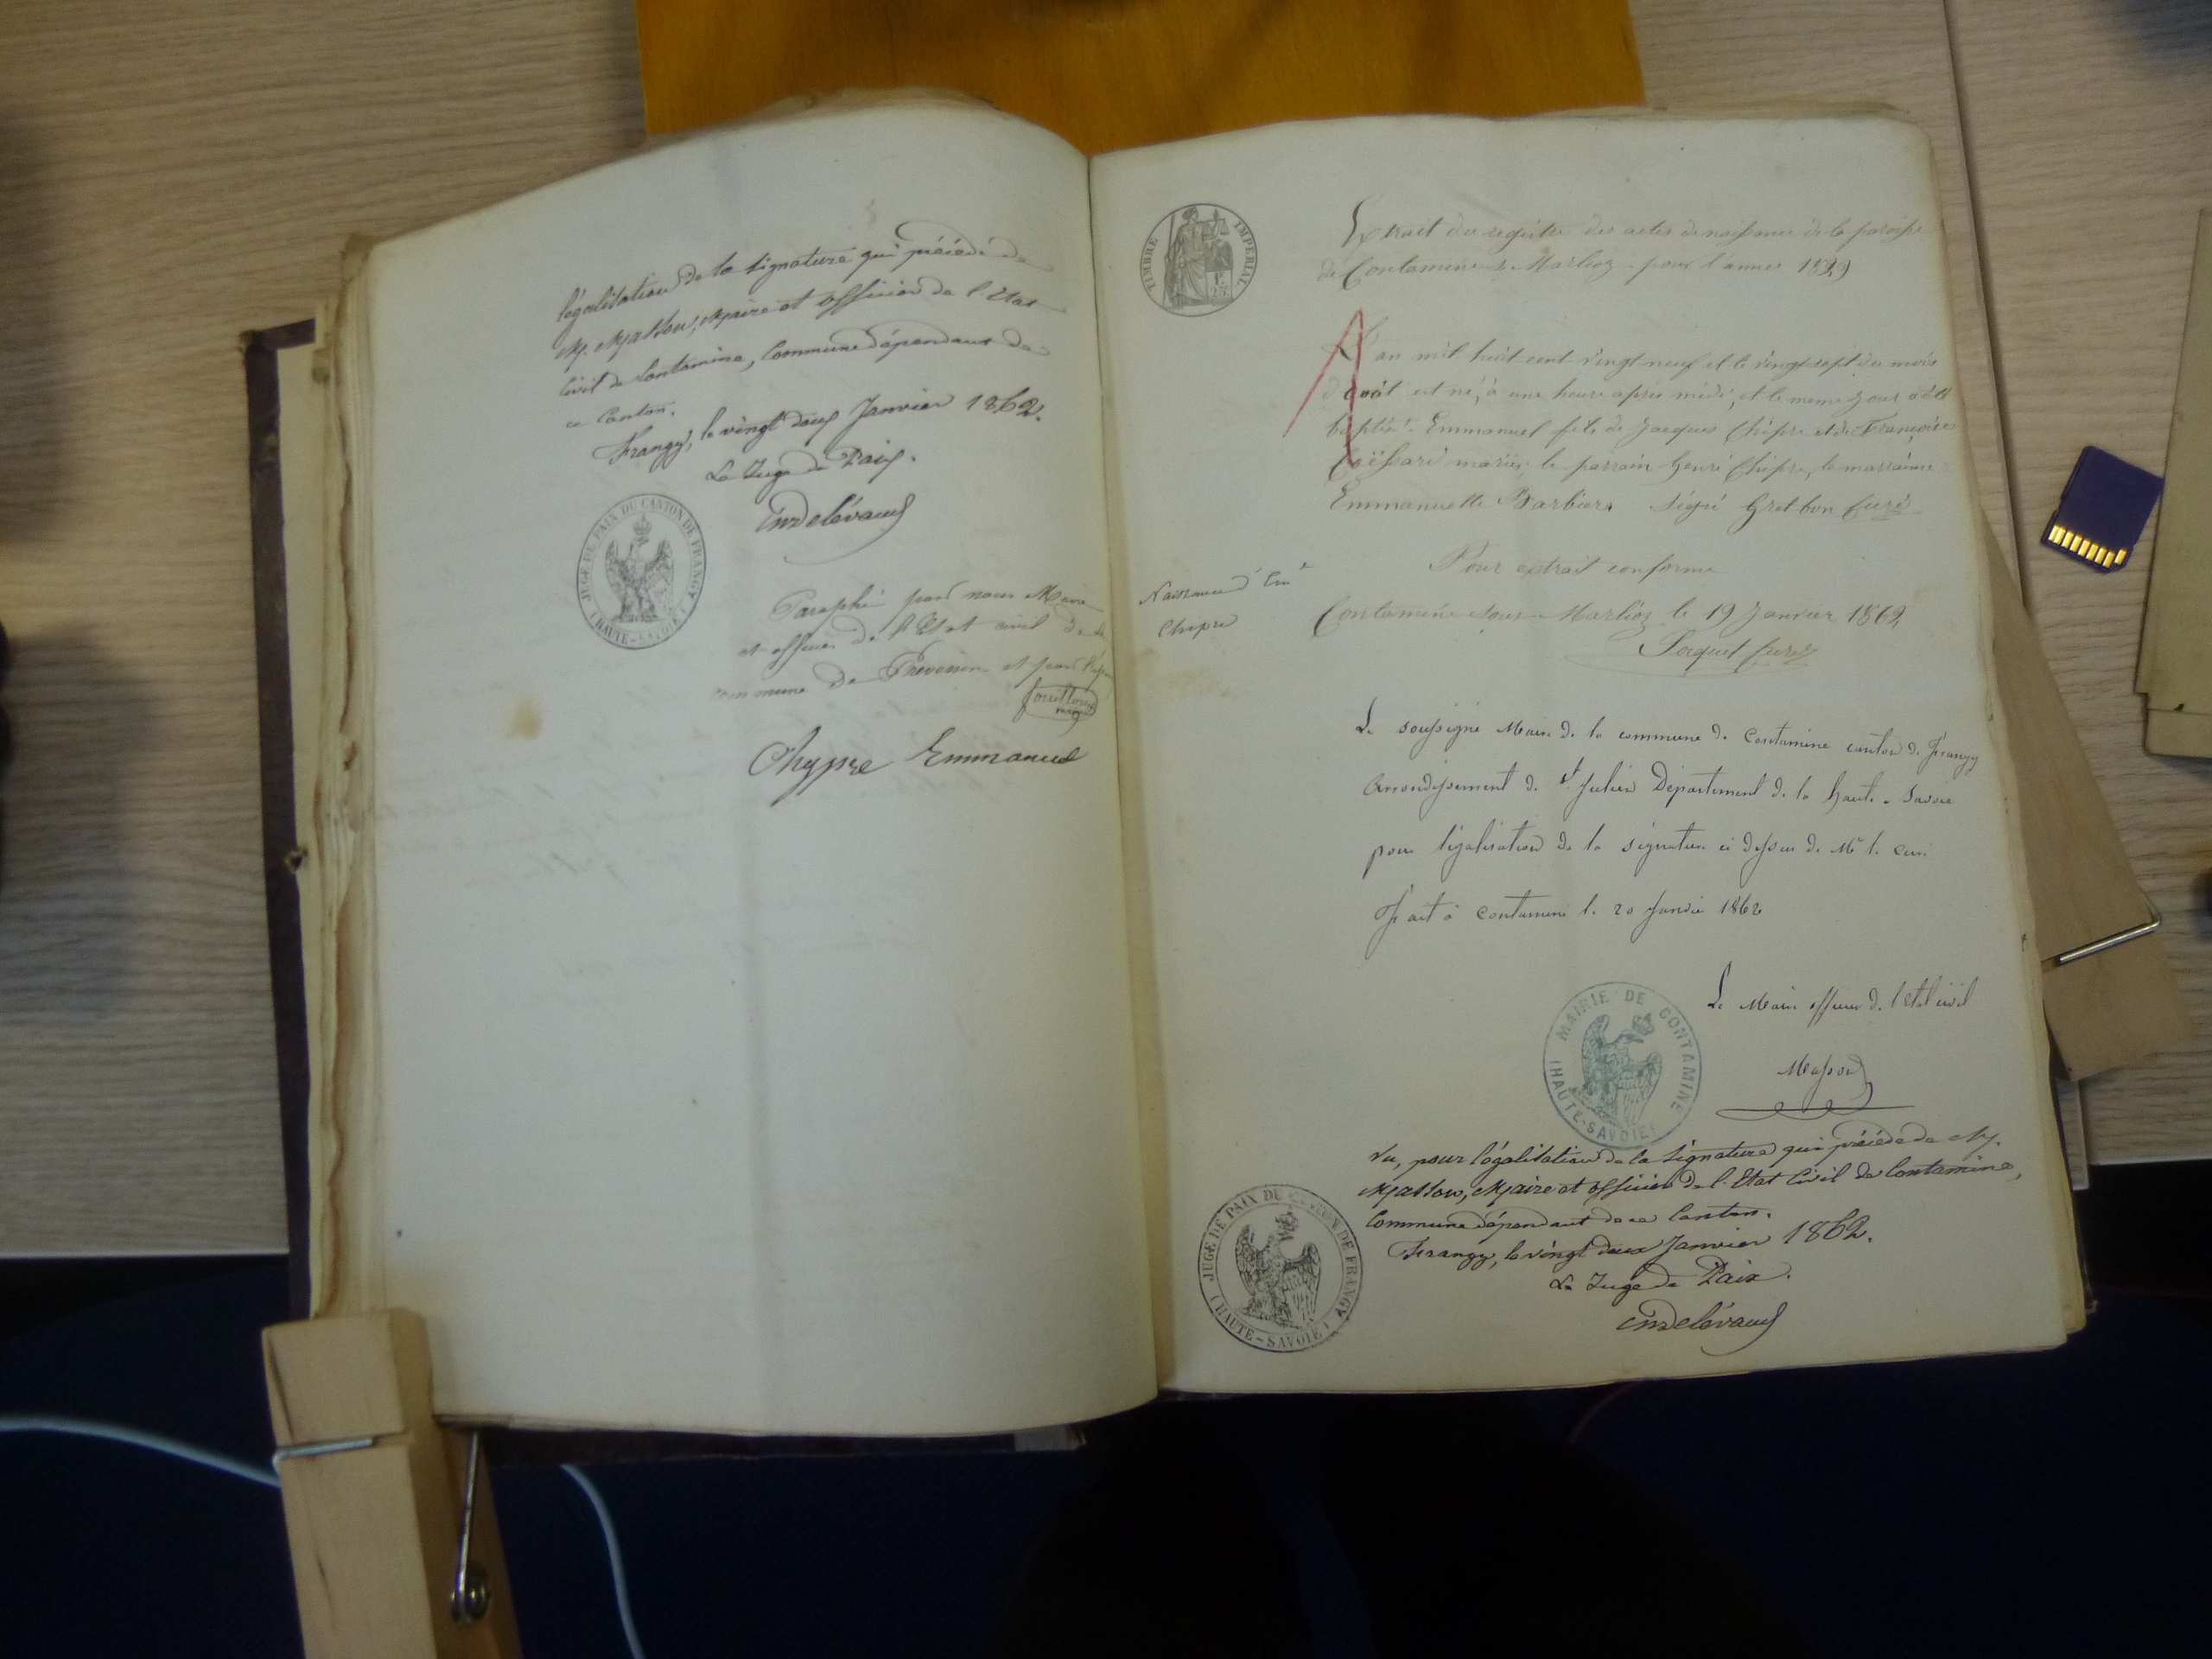 légalisation de la signature qui précède de
M. Masson, Maire et officier de l'Etat
Civil de Contamine, Commune dépendant de
ce Canton.
Frangy, le vingt deux Janvier 1862.
Le Juge de Paix.
JUGE DE PAIX DU CANTON DE FRANGY
(HAUTE-SAVOIE)
Paraphé par nous Maire
et officier de l'Etat civil de la
commune de Prevessin et par
Chypre Emmanuel
TIMBRE IMPERIAL
Extrait du registre des actes de naissance de la paroisse
de Contamine s. Marlioz pour l'année 1829
L'an mil huit cent vingt neuf et le vingt sept du mois
d'août est né, à une heure après midi, et le meme jour a été
baptisé Emmanuel fils de Jacques Chipre et de Françoise
mariés; le parrain henri Chipre, la marraine
Emmanuelle Barbier. Signé Curé
Pour extrait conforme
Naissance d'Em.l
Chipre
Contamine sous Marlioz le 19 Janvier 1862
Curé
Le soussigné Maire de la commune de Contamine canton de Frangy
Arrondissement de St Julien Département de la haute-Savoie
pour légalisation de la signature ci dessus de Mr le curé
Fait à Contamine le 20 Janvier 1862
Le Maire officier de l'Etat civil
MAIRIE DE CONTAMINE
(HAUTE-SAVOIE)
Masson
Vu, pour légalisation de la signature qui précède de M.
Masson, Maire et officier de l'Etat Civil de Contamine,
Commune dépendant de ce Canton.
Frangy, le vingt deux Janvier 1862.
Le Juge de Paix.
JUGE DE PAIX DU CANTON DE FRANGY
(HAUTE-SAVOIE)